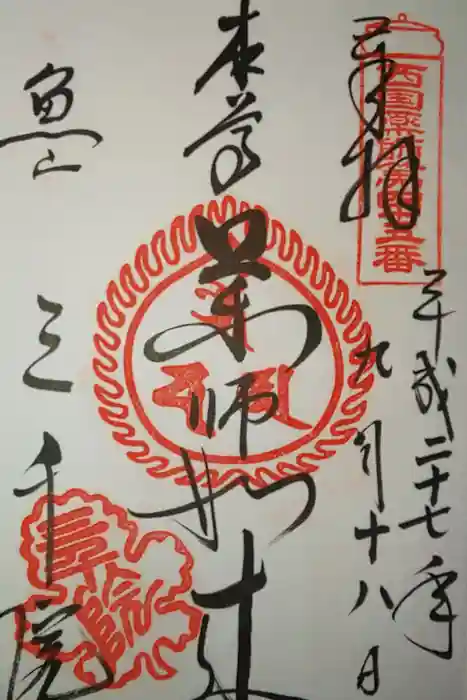 奉拝
西国薬師第四十五番
平成二十七年
九月十八日
本尊
薬師如来
魚山
三千院